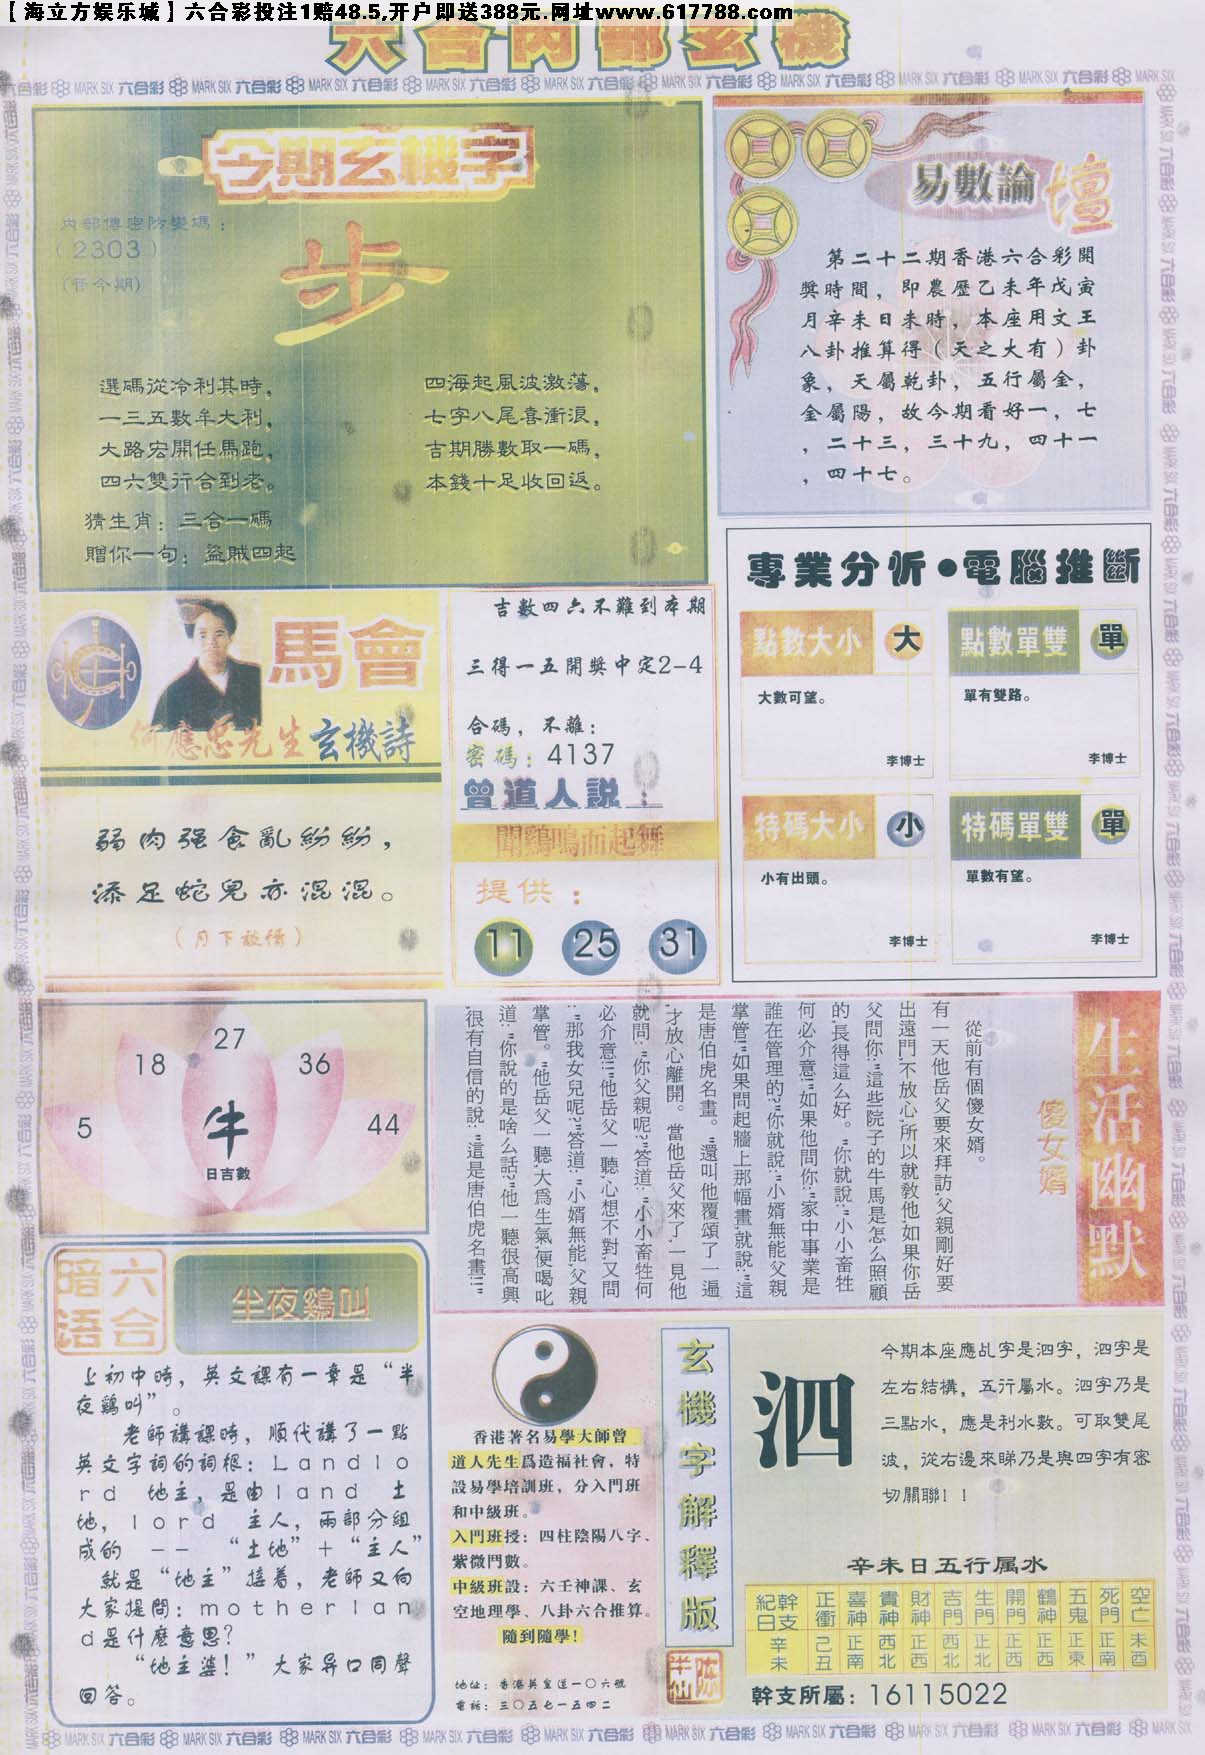 【海立方娱乐城】六合彩投注1赔48.5,开户即送388元.网址www.617788.com
六合内部玄機
今期玄機字
内部傳密防變碼：
（2303）
步
選碼從冷利其時，
一三五數牟大利，
大路宏開任馬跑，
四六雙行合到老。
四海起風波激蕩，
七字八尾喜衝浪，
吉期勝數取一碼，
本錢十足收回返。
猜生肖：三合一碼
贈你一句：盜賊四起
易數論壇
第二十二期香港六合彩開
獎時間，即農歷乙未年戊寅
月辛未日未時，本座用文王
八卦推算得（天之大有）卦
象，天屬乾卦，五行屬金，
金屬陽，故今期看好一，七
，二十三，三十九，四十一
，四十七。
馬會
何應忠先生玄機詩
弱肉强食亂紛紛，
添足蛇兒亦混混。
吉數四六不難到本期
三得一五開獎中定2-4
合碼，不離：
密碼：4137
曾道人説：
聞鷄鳴而起舞
提供：
11 25 31
專業分析●電腦推斷
點數大小 大
大數可望。
李博士
點數單雙 單
單有雙路。
李博士
特碼大小 小
小有出頭。
李博士
特碼單雙 單
單數有望。
李博士
5 18 27 36 44
牛
日吉數
生活幽默
傻女婿
從前有個傻女婿。
有一天他岳父要來拜訪,父親剛好要
出遠門,不放心,所以就教他,如果你岳
父問你:"這些院子的牛馬是怎么照顧
的,長得這么好。"你就說:"小小畜牲
何必介意!"如果他問你:"家中事業是
誰在管理的?"你就說:"小婿無能父親
掌管!"如果問起牆上那幅畫,就說:"這
是唐伯虎名畫。"還叫他覆頌了一遍
,才放心離開。當他岳父來了一見他
就問:"你父親呢?"答道:"小小畜牲何
必介意!!"他岳父一聽,心想不對,又問
:"那我女兒呢?"答道:"小婿無能,父親
掌管。"他岳父一聽,大爲生氣,便喝叱
道:"你說的是啥么話?"他一聽很高興
,很有自信的說:"這是唐伯虎名畫!!"
六合暗语
半夜鷄叫
上初中時，英文課有一章是“半
夜鷄叫”。
老師講課時，順代講了一點
英文字詞的詞根：Landlo
rd 地主，是由land 土
地，lord 主人，兩部分組
成的 -- “土地”+“主人”
就是“地主”接着，老師又向
大家提問：motherlan
d是什麼意思？
“地主婆！”大家异口同聲
回答。
香港著名易學大師曾
道人先生爲造福社會，特
設易學培訓班，分入門班
和中級班。
入門班授：四柱陰陽八字、
紫微鬥數。
中級班設：六壬神課、玄
空地理學、八卦六合推算。
隨到隨學！
地址：香港英皇道一〇六號
電話：三〇五七一五四二
玄機字解釋版
泗
今期本座應乩字是泗字，泗字是
左右結構，五行屬水。泗字乃是
三點水，應是利水數。可取雙尾
波，從右邊來睇乃是與四字有密
切關聯！！
辛未日五行属水
紀日幹支 正衝 喜神 貴神 財神 吉門 生門 開門 鶴神 五鬼 死門 空亡
辛未 己丑 正南 西北 正西 西北 正北 正西 正西 正東 正南 未酉
幹支所屬：16115022
MARK SIX 六合彩